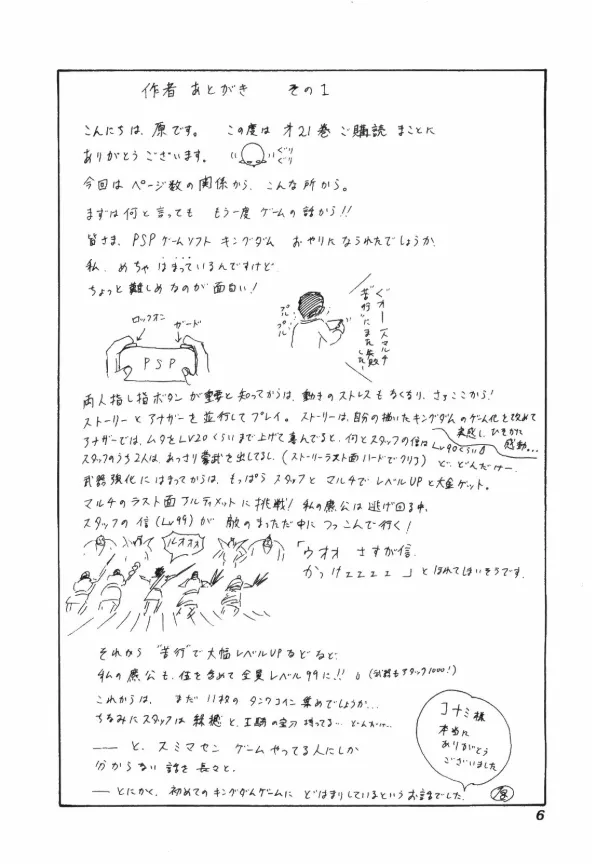 作者 あとがき その1
こんにちは、原です。 この度は 才21巻 ご購読 まことに
ありがとうございます。 ぐりぐり
今回は ページ数の関係から、こんな所から。
まずは何と言っても もう一度 ゲームの話から!!
皆さま、PSPゲームソフト キングダム おやりになられたでしょうか
私、めちゃはまっているんですけど
ちょっと難しめなのが面白い!
ロックオン
ガード
PSP
プルプル
プルプル
苦行にまた失敗
両人指し指ボタンが重要と知ってからは、動きのストレスもなくなり、さぁここから!
ストーリーとアナザーを並行してプレイ。 ストーリーは、自分の描いたキングダムのゲーム化を改めて
実感し、ひそかに感動...
アナザーでは、ムタをLV20くらいまで上げて喜んでると、何とスタッフの信はLv90くらい
ど、どんだけー
スタッフのうち2人は、あっさり蒙武を出してるし、(ストーリーラスト面ハードでクリア)
武器強化にはまってからは、もっぱら スタッフと マルチでレベルUPと大金ゲット。
マルチのラスト面アルティメットに挑戦! 私の麃公は逃げ回る中、
スタッフの信(Lv99)が 敵のまっただ中に つっこんで行く!
ルオオオ
「ウオオ さすが信、
かっけェェェェ」とほれてしまいそうです。
それから "苦行"で大幅レベルUPなどなど、
私の麃公も、信を含めて全員レベル99に!! (武器もアタック1000!)
これからは、 まだ11枚の タンクコイン集めでしょうか...
ちなみにスタッフは 録穂と、王騎の宝刀 持ってる… どんだけ…
―― と、スミマセン ゲームやってる人にしか
分からない 話を 長々と、
―― とにかく、初めてのキングダムゲームに どはまりしているという お話でした。
コナミ様
本当に
ありがとう
ございました
原
6